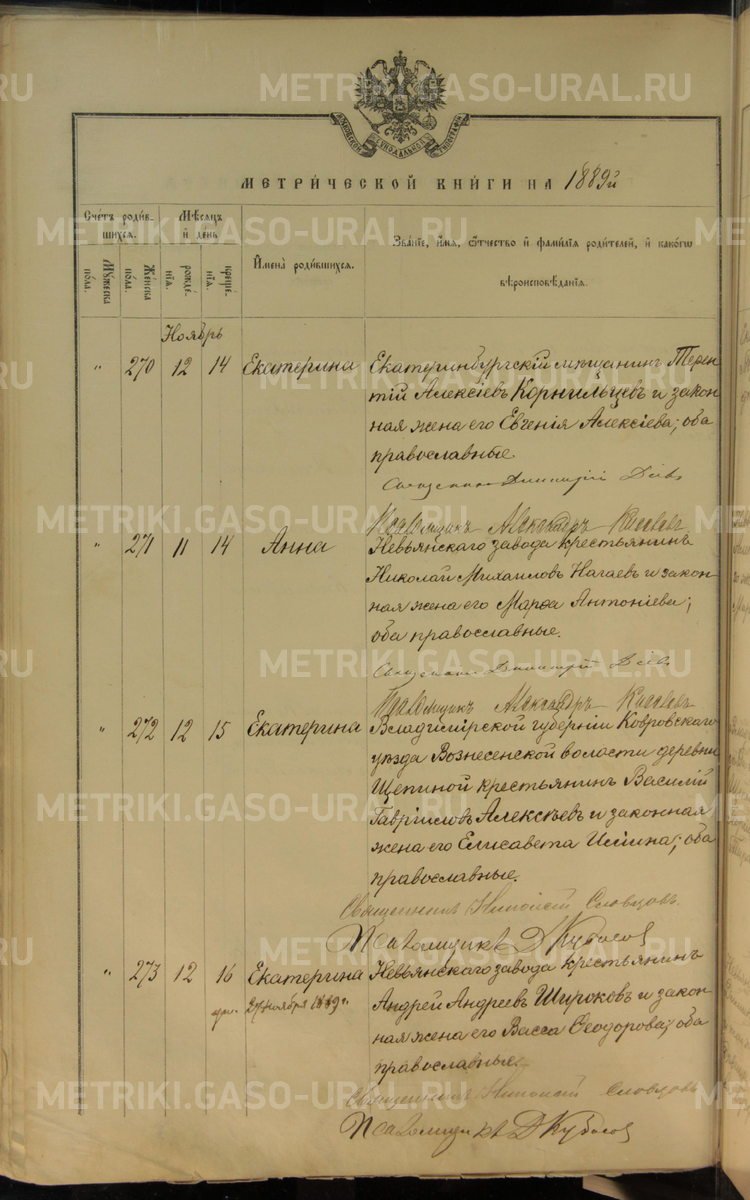 МЕТРИ́ЧЕСКОЙ КНИ́ГИ НА 1889й
Сче́тъ роди́в-
шихся.
Мѣ́сяцъ
и де́нь
Мꙋ́жеска
по́ла.
Же́нска
по́ла.
рожде́-
нїя.
креще́-
нїя.
И҆мена̀ роди́вшихся.
Зва́нїе, и҆́мя, ѻ҆́тчество и҆ фамилїя роди́телей, и҆ како́гѡ
вѣроисповѣ́данїя.
Ноябрь
" 270 12 14 Екатерина
Екатеринбургскій мѣщанинъ Терен
тій Алексіевъ Корнильцевъ и закон
ная жена его Евгенія Алексіева; оба
православные.
Священникъ Димитрій
Псаломщикъ Александръ
" 271 11 14 Анна
Невьянскаго завода крестьянинъ
Николай Михаиловъ Нагаевъ и закон-
ная жена его Марѳа Антоніева;
оба православные.
Священникъ Димитрій
Псаломщикъ Александръ
" 272 12 15 Екатерина
Владимірской губерніи Ковровскаго
уѣзда Вознесенской волости деревни
Щепиной крестьянинъ Василій
Гавріиловъ Алексѣевъ и законная
жена его Елисавета Иліина; оба
православные.
Священникъ Николай Словцовъ.
Псаломщикъ Д Кубасов
" 273 12 16 Екатерина
27 ноября 1889 г.
Невьянскаго завода крестьянинъ
Андрей Андреевъ Широковъ и закон-
ная жена его Васса Ѳеодорова; оба
православные.
Священникъ Николай Словцовъ
Псаломщикъ Д Кубасов
METRIKI.GASO-URAL.RU